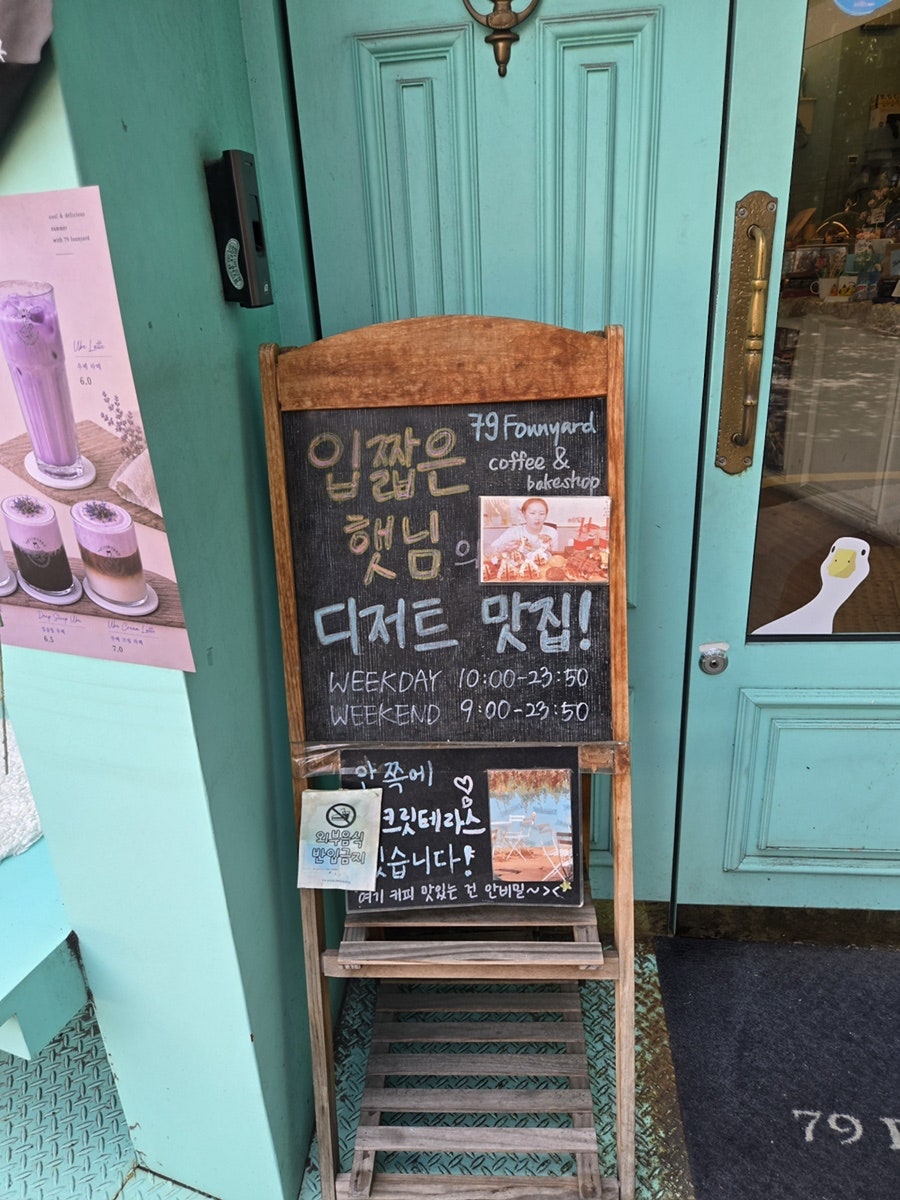 cool & delicious
summer
with 79 founyard
Ube Latte
우베 라떼
6.0
Deep Shup Ube
6.5
Ube Cream Latte
우베 크림 라떼
7.0
79 Founyard
coffee &
bakeshop
입짧은
햇님의
디저트 맛집!
WEEKDAY 10:00-23:50
WEEKEND 9:00-23:50
안쪽에
크릿테라스
있습니다!
여기 커피 맛있는 건 안비밀~><
외부음식
반입금지
79